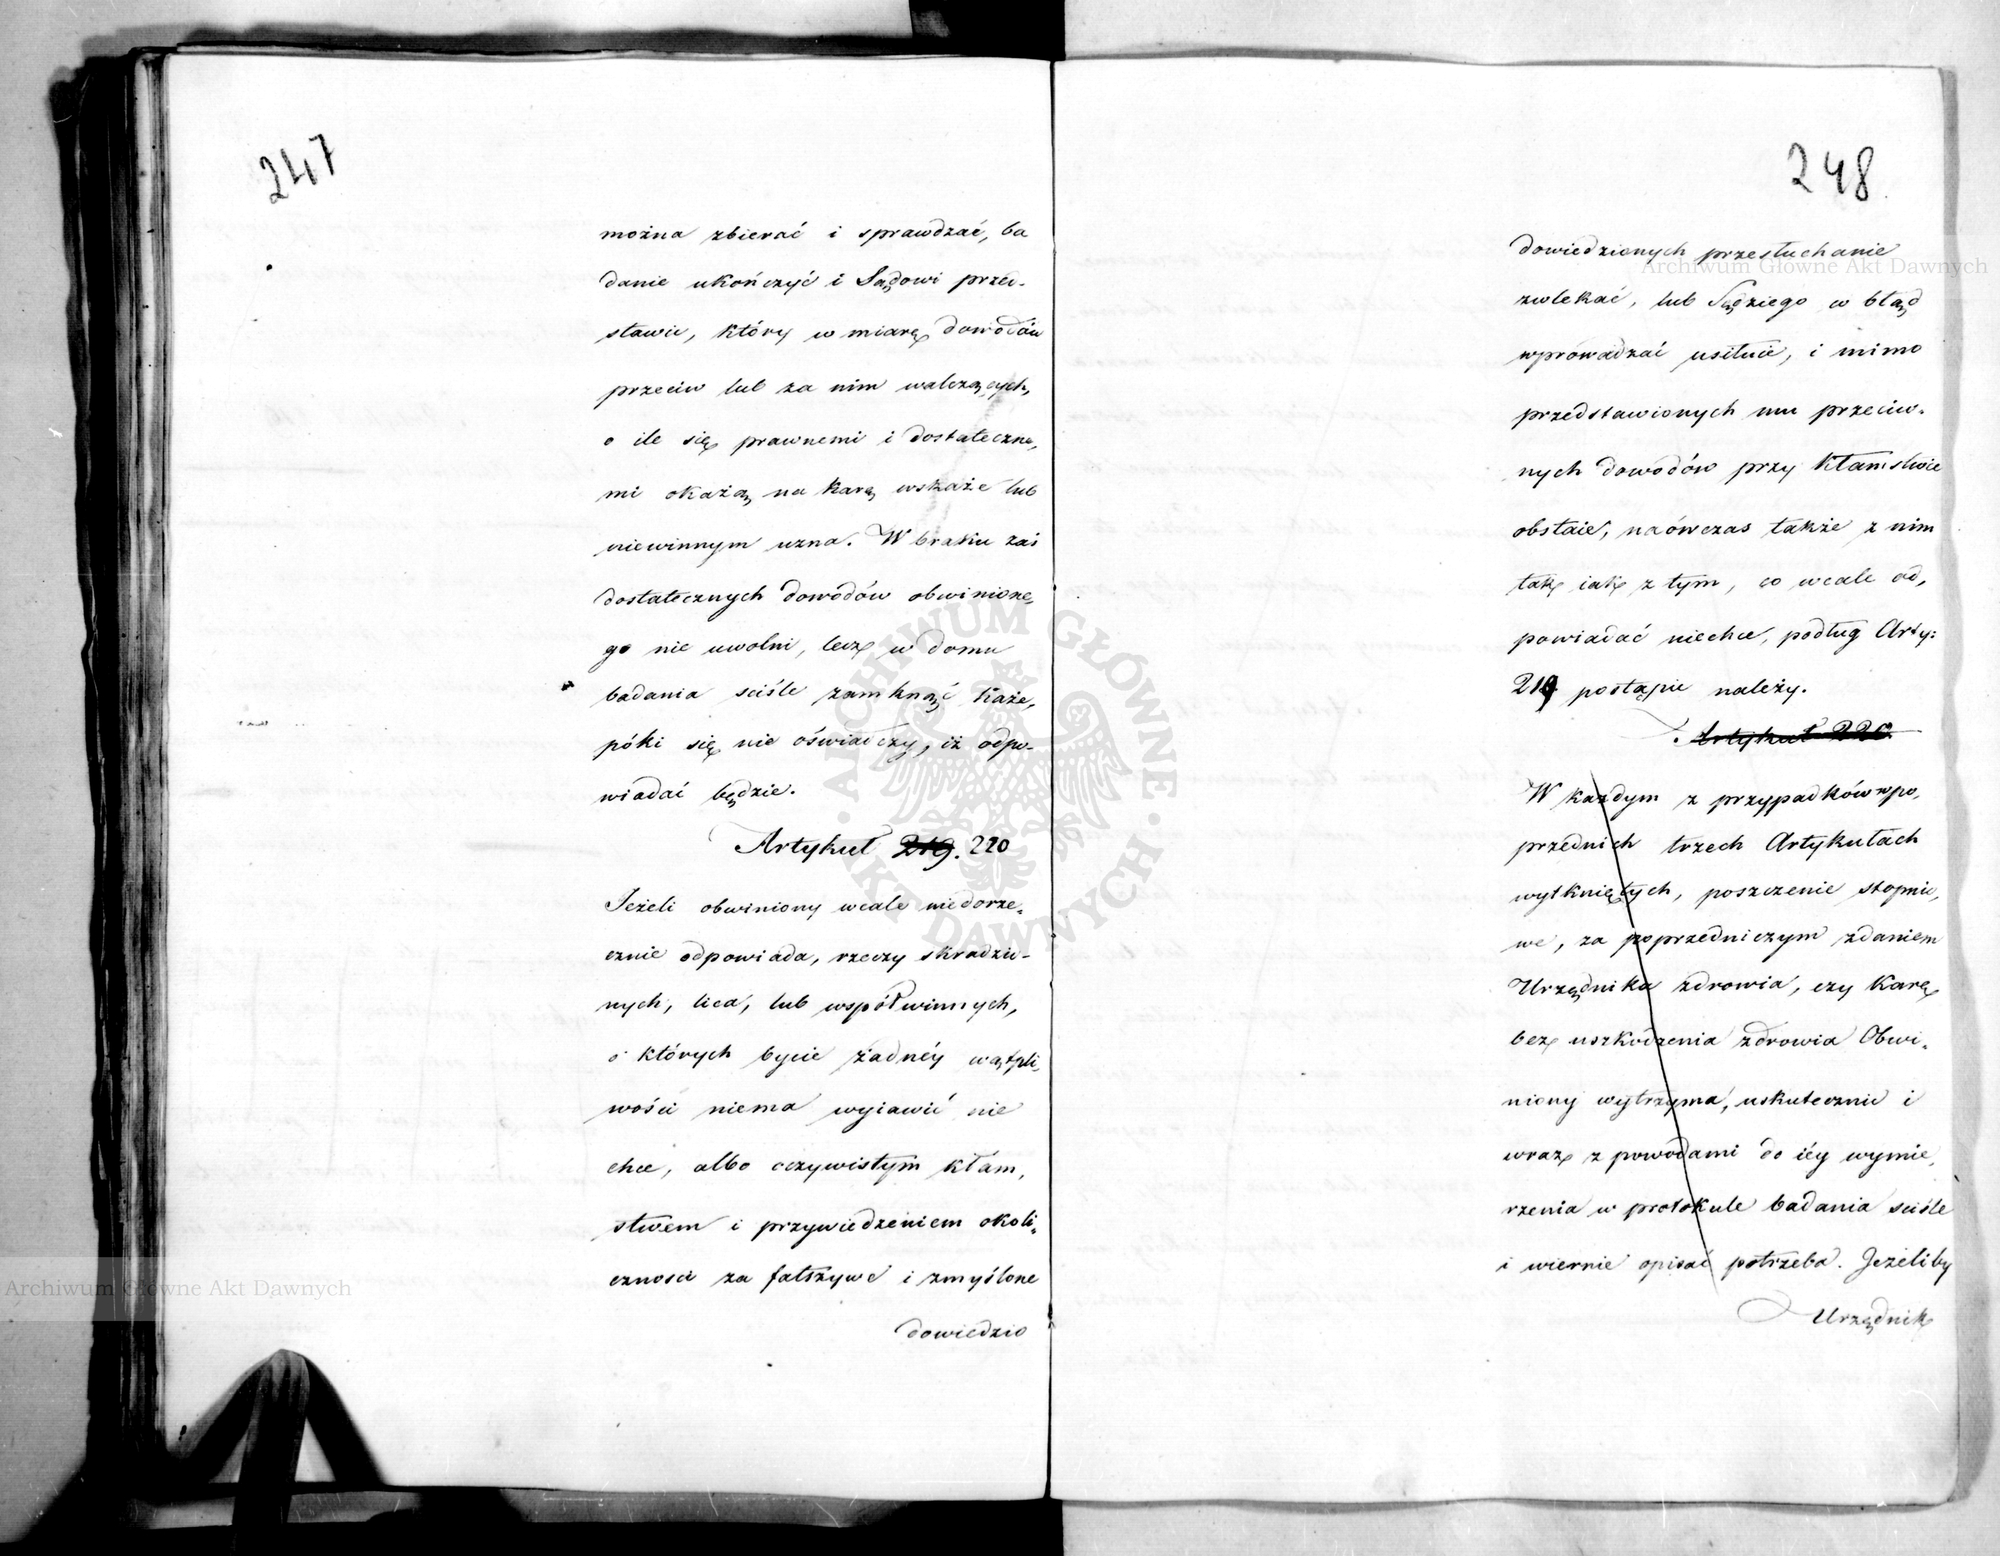 247
można zbierać i sprawdzać, ba
danie ukończyć i Sądowi przed-
stawić, który w miarę dowodów
przeciw lub za nim walczących,
o ile się prawnemi i dostateczne,
mi okażą na karę wskaże lub
niewinnym uzna. W braku zaś
dostatecznych dowodów obwinione,
go nie uwolni, lecz w domu
badania ściśle zamknąć każe,
póki się nie oświadczy, iż odpo-
wiadać będzie.
Artykuł 219. 220
Jeżeli obwiniony wcale niedorze,
cznie odpowiada, rzeczy skradzio-
nych, lica, lub współwinnych,
o których bycie żadnéy wątpli,
wości niema wyiawić nie
chce, albo oczywistym kłam,
stwem i przywiedzeniem okoli,
czności za fałszywe i zmyślone
dowiedzio
248
dowiedzionych przesłuchanie
zwlekać, lub Sędziego w błąd
wprowadzać usiłuie, i mimo
przedstawionych mu przeciw-
nych dowodów przy kłamstwie
obstaie, naówczas także z nim
tak iak z tym, co wcale od,
powiadać niechce, podług Arty:
219 postąpić należy.
Artykuł 220
W każdym z przypadków w po,
przednich trzech Artykułach
wytkniętych, poszczenie stopnio,
we, za poprzedniczym zdaniem
Urzędnika zdrowia, czy karę
bez uszkodzenia zdrowia Obwi-
niony wytrzyma, uskutecznić i
wraz z powodami do iéy wymie,
rzenia w protokule badania ściśle
i wiernie opisać potrzeba. Jeżeliby
Urzędnik
Archiwum Główne Akt Dawnych
Archiwum Główne Akt Dawnych
ARCHIWUM GŁÓWNE AKT DAWNYCH